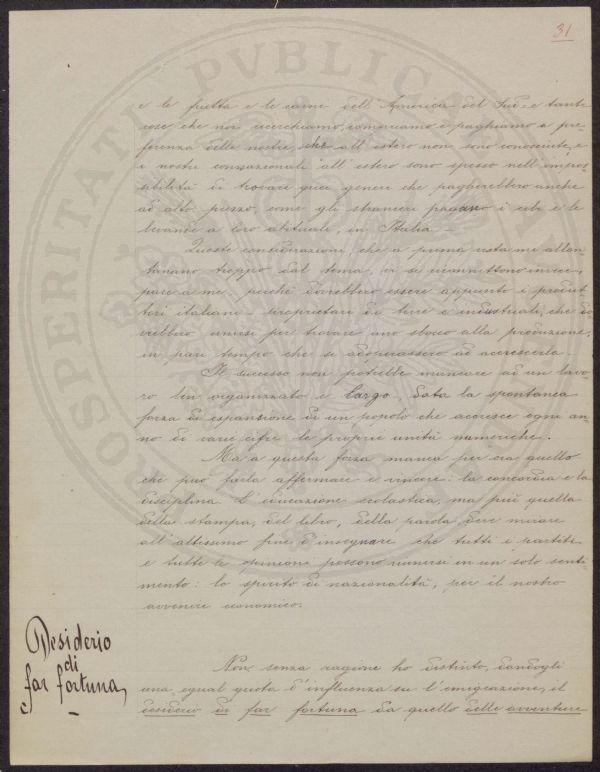 31
e le frutta e le carne dell'America del Sud e tante
cose che noi cerchiamo, compriamo e paghiamo a pre-
ferenza delle nostre, che all'estero non sono conosciute, e
i nostri connazionali all'estero sono spesso nell'impos-
sibilità di trovare quei generi che pagherebbero anche
ad alto prezzo, come gli stranieri pagano i cibi e le
bevande a loro abituali, in Italia –
Queste considerazioni, che a prima vista mi allon-
tanano troppo dal tema, vi si riconnettono invece,
pare a me, perchè dovrebbero essere appunto i produt-
tori italiani – proprietari di terre e industriali, che do-
vrebbero unirsi per trovare uno sbocco alla produzione,
in pari tempo che si adoperassero ad accrescerla.
Il successo non potrebbe mancare ad un lavo-
ro ben organizzato e largo, data la spontanea
forza di espansione di un popolo che accresce ogni an-
no di varie cifre le proprie unità numeriche.
Ma a questa forza manca per ora quello
che può farla affermare e vincere: la concordia e la
disciplina. L'educazione scolastica, ma più quella
della stampa, del libro, della parola, deve mirare
all'altissimo fine d'insegnare che tutti i partiti
e tutte le opinioni possono riunirsi in un solo senti-
mento: lo spirito di nazionalità, per il nostro
avvenire economico.
Desiderio
di
far fortuna
Non senza ragione ho distinto, dandogli
una egual quota d'influenza su l'emigrazione, il
desiderio di far fortuna da quello delle avventure
PROSPERITATI PVBLICAE